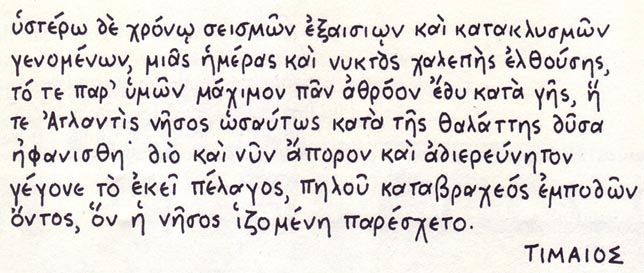 ὑστέρῳ δὲ χρόνῳ σεισμῶν ἐξαισίων καὶ κατακλυσμῶν
γενομένων, μιᾶς ἡμέρας καὶ νυκτὸς χαλεπῆς ἐλθούσης,
τό τε παρ' ὑμῶν μάχιμον πᾶν ἁθρόον ἔδυ κατὰ γῆς, ἥ
τε Ἀτλαντὶς νῆσος ὡσαύτως κατὰ τῆς θαλάττης δῦσα
ἠφανίσθη· διὸ καὶ νῦν ἄπορον καὶ ἀδιερεύνητον
γέγονε τὸ ἐκεῖ πέλαγος, πηλοῦ καταβραχέος ἐμποδὼν
ὄντος, ὃν ἡ νῆσος ἱζομένη παρέσχετο.
ΤΙΜΑΙΟΣ